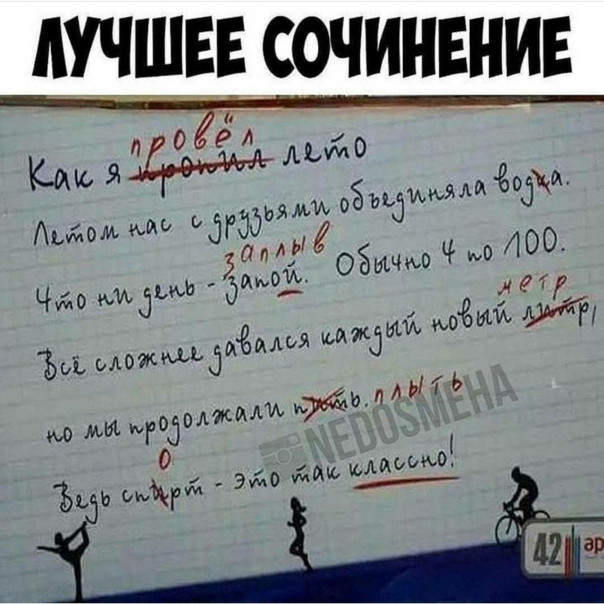 ЛУЧШЕЕ СОЧИНЕНИЕ
провёл
Как я пропил лето
Летом нас с друзьями объединяла водка.
заплыв
Что ни день - запой. Обычно 4 по 100.
метр
Всё сложнее давался каждый новый литр,
но мы продолжали пить. плыть
О
Ведь спирт - это так классно!
NEDOSMEHA
42 ар